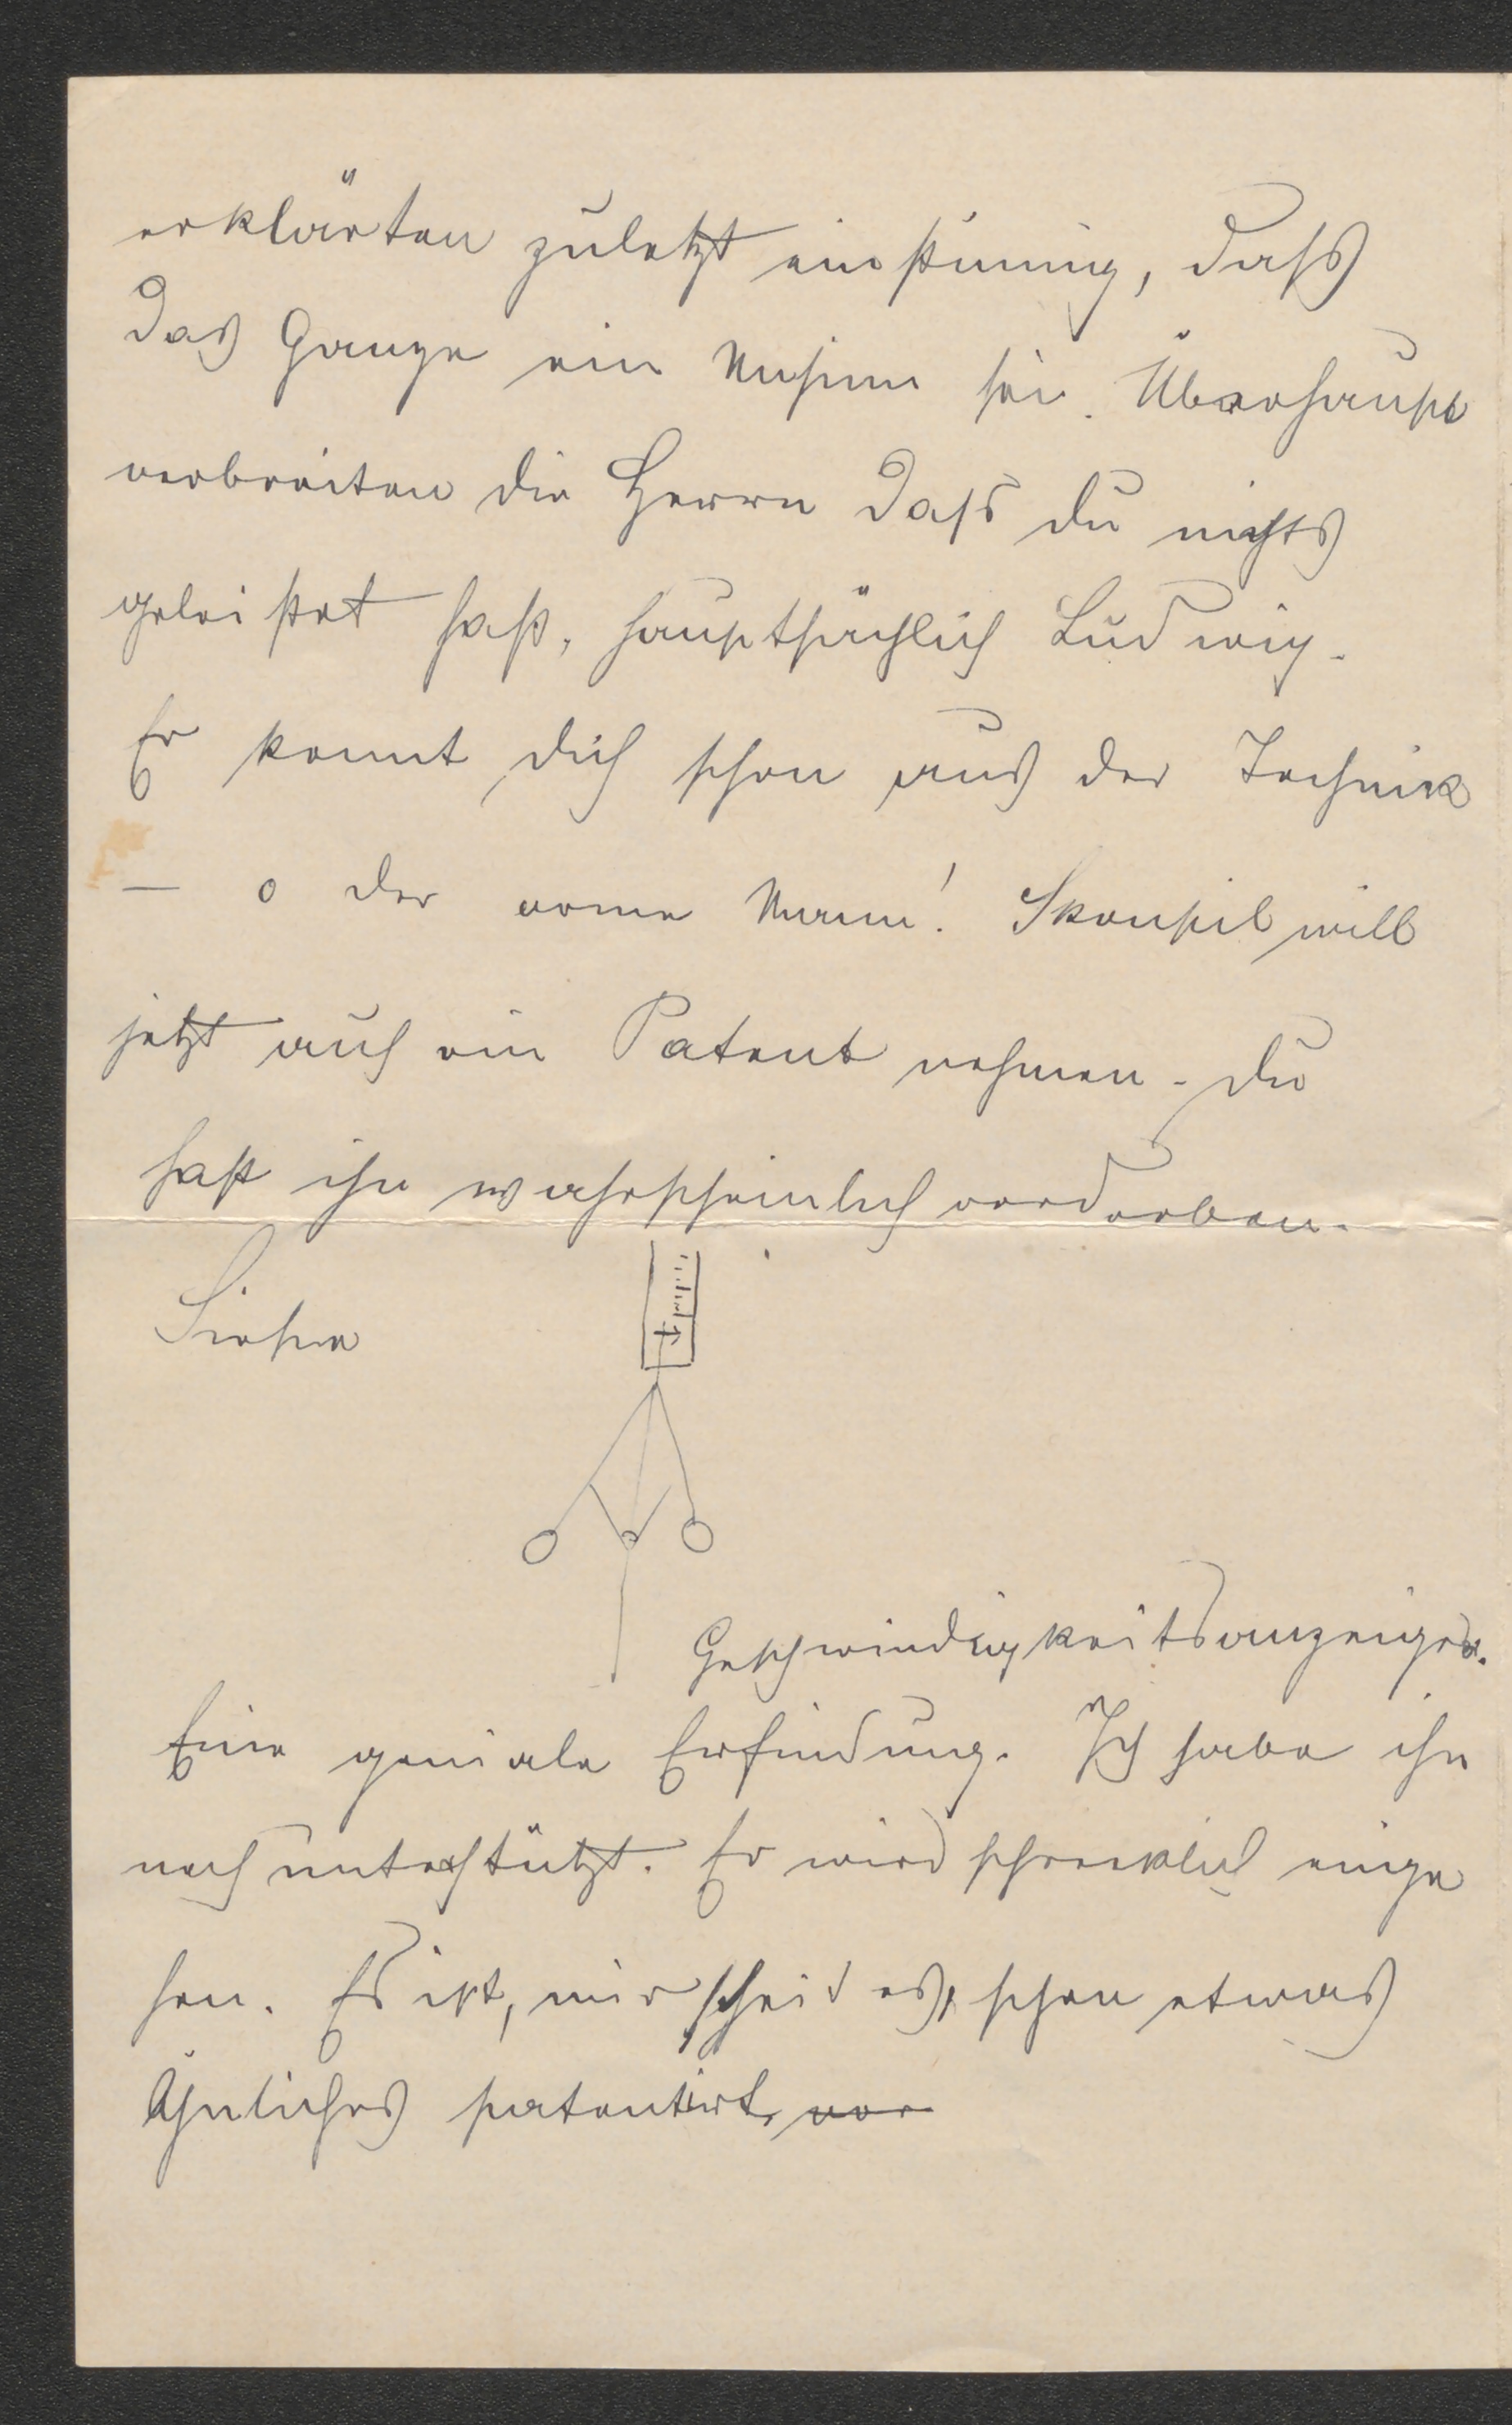 erklärten zuletzt einstimig, dass
das Ganze ein Unsinn sei. Überhaupt
verbreiten die Herrn dass du nichts
geleistet hast, hauptsächlich Ludwig.
Er kennt dich schon aus der Technik
— o der arme Mann! Skoupil will
jetzt auch ein Patent nehmen. du
hast ihn wahrscheinlich verdorben.
Siehe
Geschwindigkeitsanzeiger.
Eine geniale Erfindung. Ich habe ihn
noch unterstützt. Er wird schrecklich einge
hen. Es ist, mir scheid es, schon etwas
Ähnliches patentirt, vor